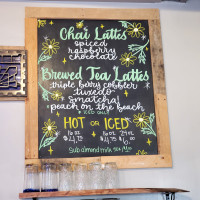 Chai Lattes
spiced
raspberry
chocolate
Brewed Tea Lattes
triple berry cobbler
tuxedo
matcha
peach on the beach
HOT or ICED
16 oz 16 oz 24 oz
$4.75 $ $6
Sub almond milk